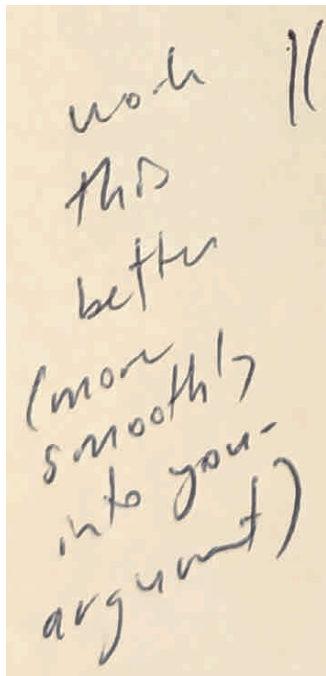 work
this
better
(more
smoothly
into your
argument)